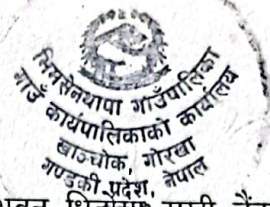 भिमसेनथापा गाउँपालिका
गाउँ कार्यपालिकाको कार्यालय
खाञ्चोक, गोरखा
गण्डकी प्रदेश, नेपाल